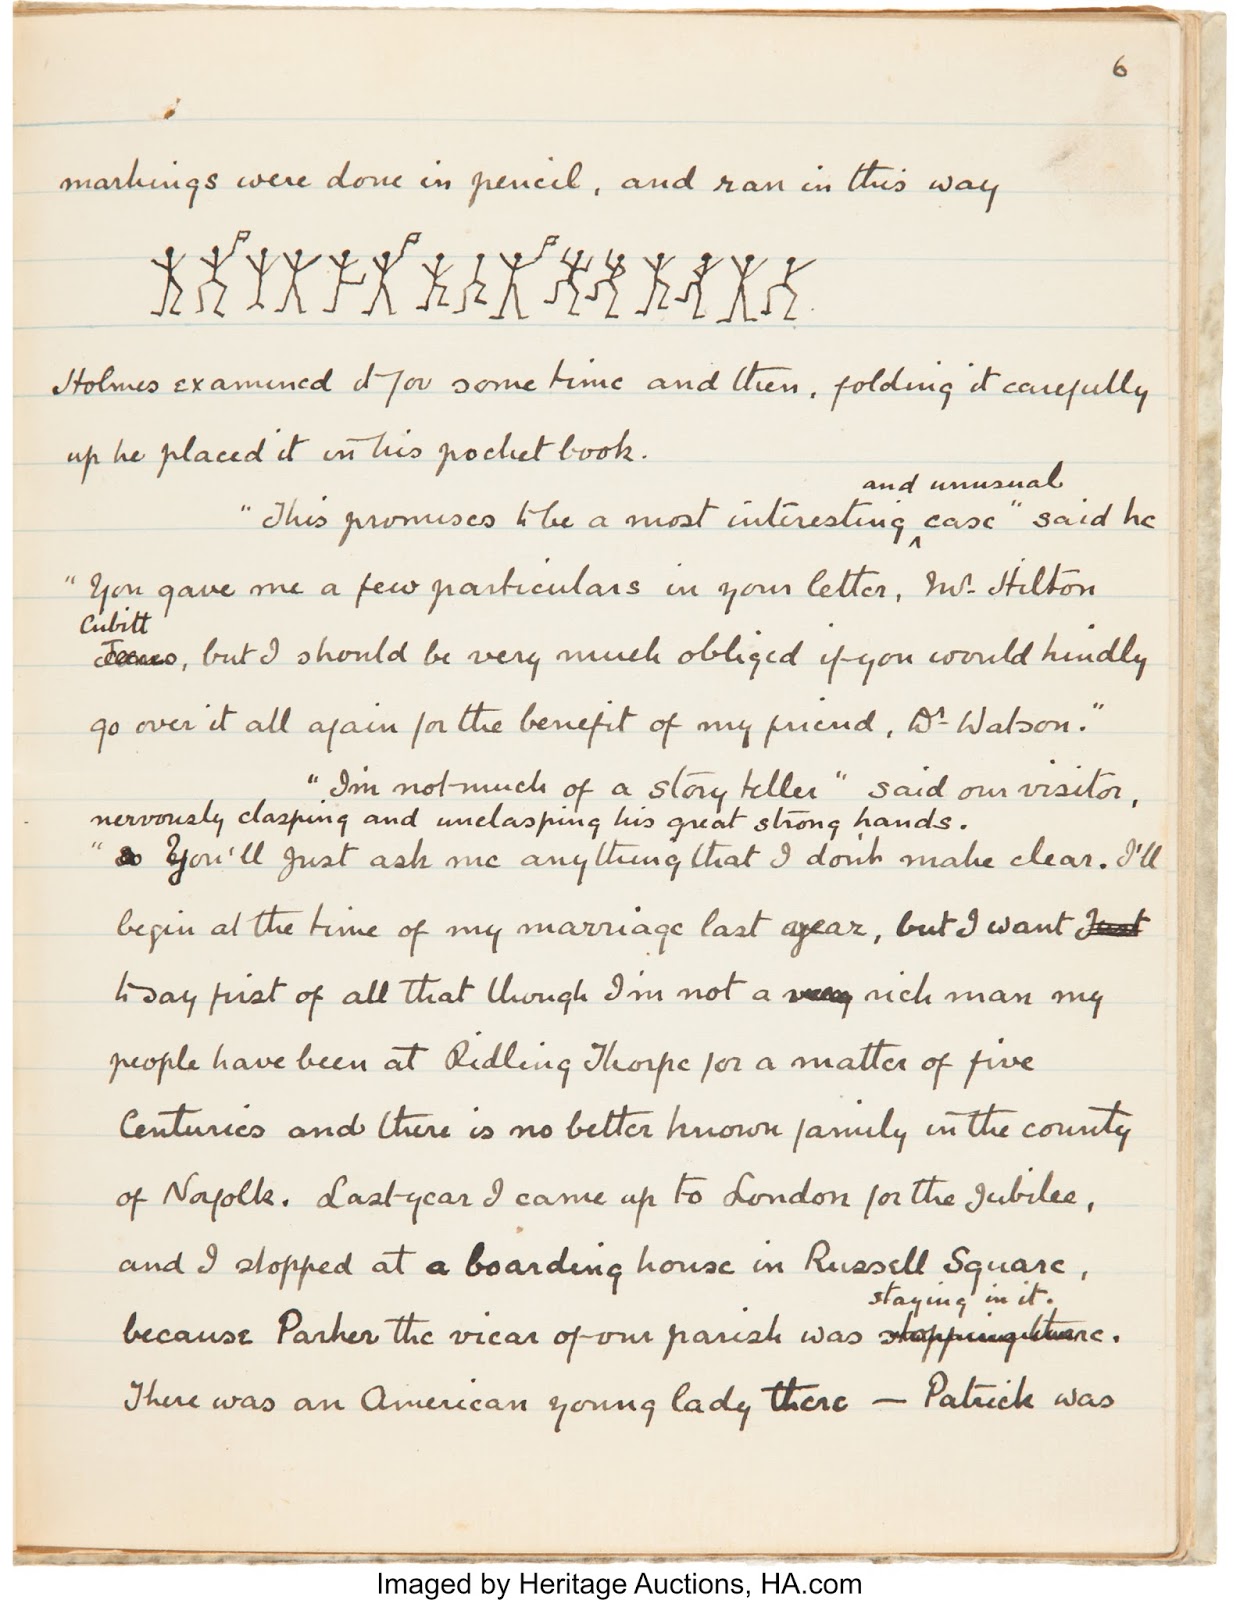 6
markings were done in pencil, and ran in this way
Holmes examined it for some time and then, folding it carefully
up he placed it in his pocket book.
and unusual
"This promises to be a most interesting ^ case" said he
"You gave me a few particulars in your letter, Mr. Hilton
Cubitt
, but I should be very much obliged if you would kindly
go over it all again for the benefit of my friend, Dr. Watson."
"I'm not much of a story teller" said our visitor,
nervously clasping and unclasping his great strong hands.
" You'll just ask me anything that I don't make clear. I'll
begin at the time of my marriage last year, but I want Just
to say first of all that though I'm not a very rich man my
people have been at Ridling Thorpe for a matter of five
Centuries and there is no better known family in the county
of Norfolk. Last year I came up to London for the Jubilee,
and I stopped at a boarding house in Russell Square,
staying in it.
because Parker the vicar of our parish was stopping there.
There was an American young lady there — Patrick was
Imaged by Heritage Auctions, HA.com